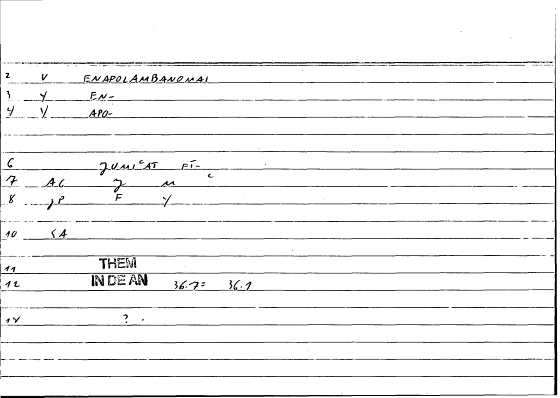 2 V ENAPOLAMBANOMAI
3 Y EN-
4 V APO-
6 FI-
7 AG
8 F Y
10 SA
11 THEM
12 IN DE AN 36.7= 36.1
14 ? .